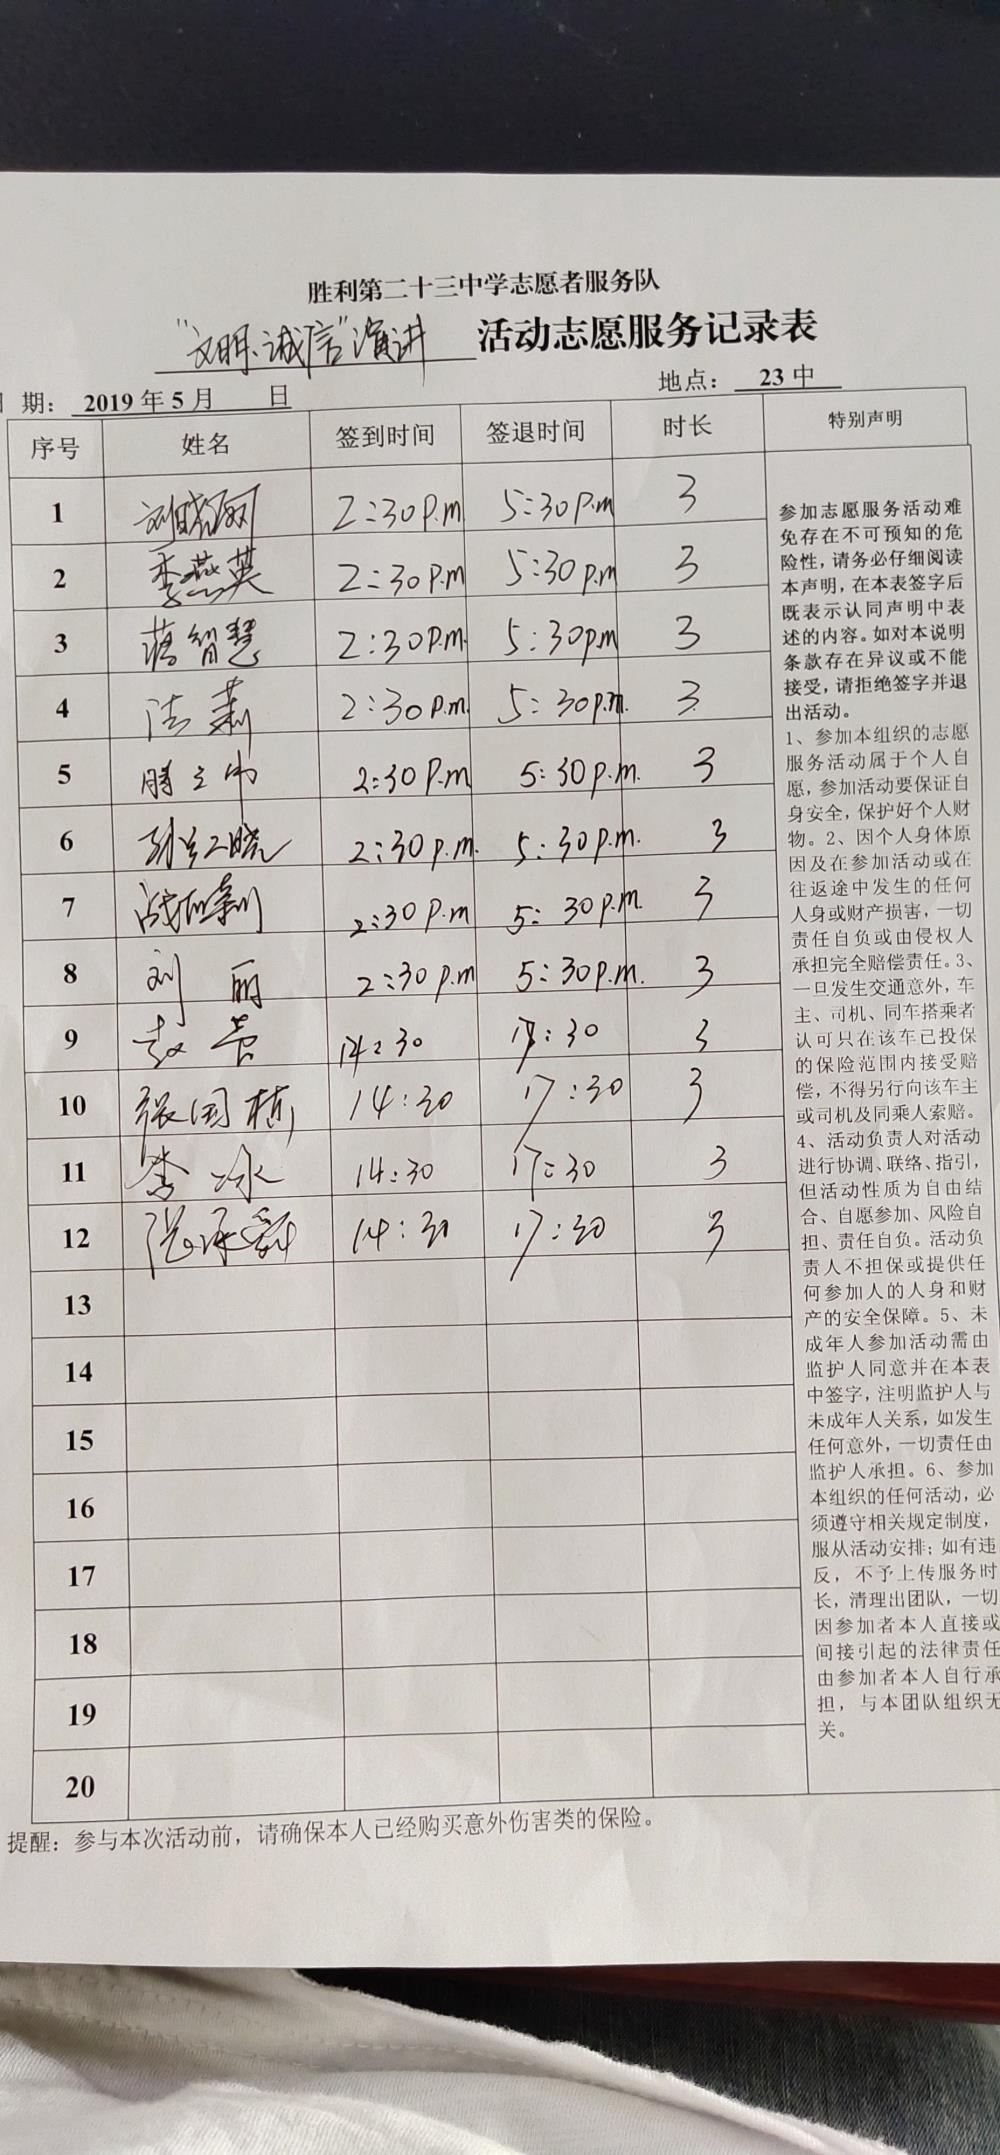 胜利第二十三中学志愿者服务队
"文明、诚信"演讲 活动志愿服务记录表
期： 2019 年 5 月 日 地点： 23 中
序号 姓名 签到时间 签退时间 时长 特别声明
1 2:30 p.m 5:30 p.m 3
2 李燕英 2:30 p.m 5:30 p.m 3
3 蒋智慧 2:30 p.m. 5:30 p.m 3
4 2:30 p.m. 5:30 p.m. 3
5 2:30 p.m 5:30 p.m. 3
6 2:30 p.m. 5:30 p.m. 3
7 2:30 p.m 5:30 p.m. 3
8 刘丽 2:30 p.m 5:30 p.m. 3
9 14:30 17:30 3
10 张国栋 14:30 17:30 3
11 李冰 14:30 17:30 3
12 14:30 17:30 3
13
14
15
16
17
18
19
20
参加志愿服务活动难
免存在不可预知的危
险性，请务必仔细阅读
本声明，在本表签字后
既表示认同声明中表
述的内容。如对本说明
条款存在异议或不能
接受，请拒绝签字并退
出活动。
1、参加本组织的志愿
服务活动属于个人自
愿，参加活动要保证自
身安全，保护好个人财
物。2、因个人身体原
因及在参加活动或在
往返途中发生的任何
人身或财产损害，一切
责任自负或由侵权人
承担完全赔偿责任。3、
一旦发生交通意外，车
主、司机、同车搭乘者
认可只在该车已投保
的保险范围内接受赔
偿，不得另行向该车主
或司机及同乘人索赔。
4、活动负责人对活动
进行协调、联络、指引，
但活动性质为自由结
合、自愿参加、风险自
担、责任自负。活动负
责人不担保或提供任
何参加人的人身和财
产的安全保障。5、未
成年人参加活动需由
监护人同意并在本表
中签字，注明监护人与
未成年人关系，如发生
任何意外，一切责任由
监护人承担。6、参加
本组织的任何活动，必
须遵守相关规定制度，
服从活动安排；如有违
反，不予上传服务时
长，清理出团队，一切
因参加者本人直接或
间接引起的法律责任
由参加者本人自行承
担，与本团队组织无
关。
提醒：参与本次活动前，请确保本人已经购买意外伤害类的保险。